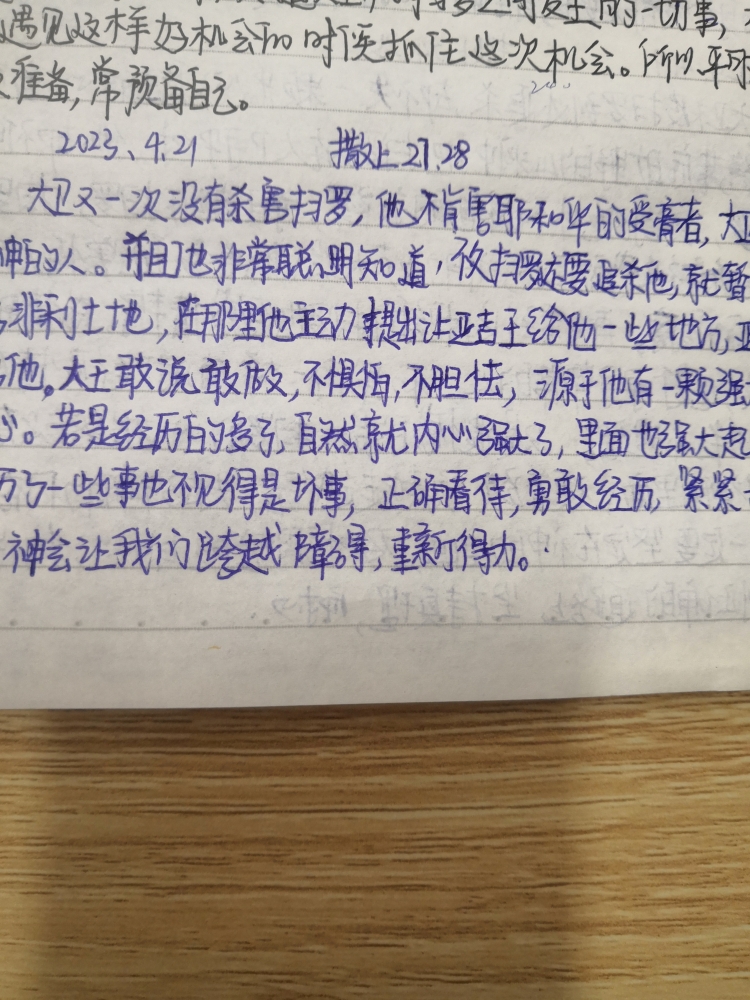 一切事,
遇见这样好机会的时候抓住这次机会。所以平时
准备,常预备自己。
2023、4.21 撒上27.28
大卫又一次没有杀害扫罗,他不肯害耶和华的受膏者,大卫
神的人。并且他非常聪明知道,扫罗还要追杀他,就暂
非利士地,在那里他主动提出让亚吉王给他一些地方,亚
他。大王敢说敢做,不惧怕,不胆怯,源于他有一颗强
心。若是经历的多了,自然就内心强大了,里面也强大起
历了一些事也不见得是坏事,正确看待,勇敢经历,紧紧
神会让我们跨越障碍,重新得力。